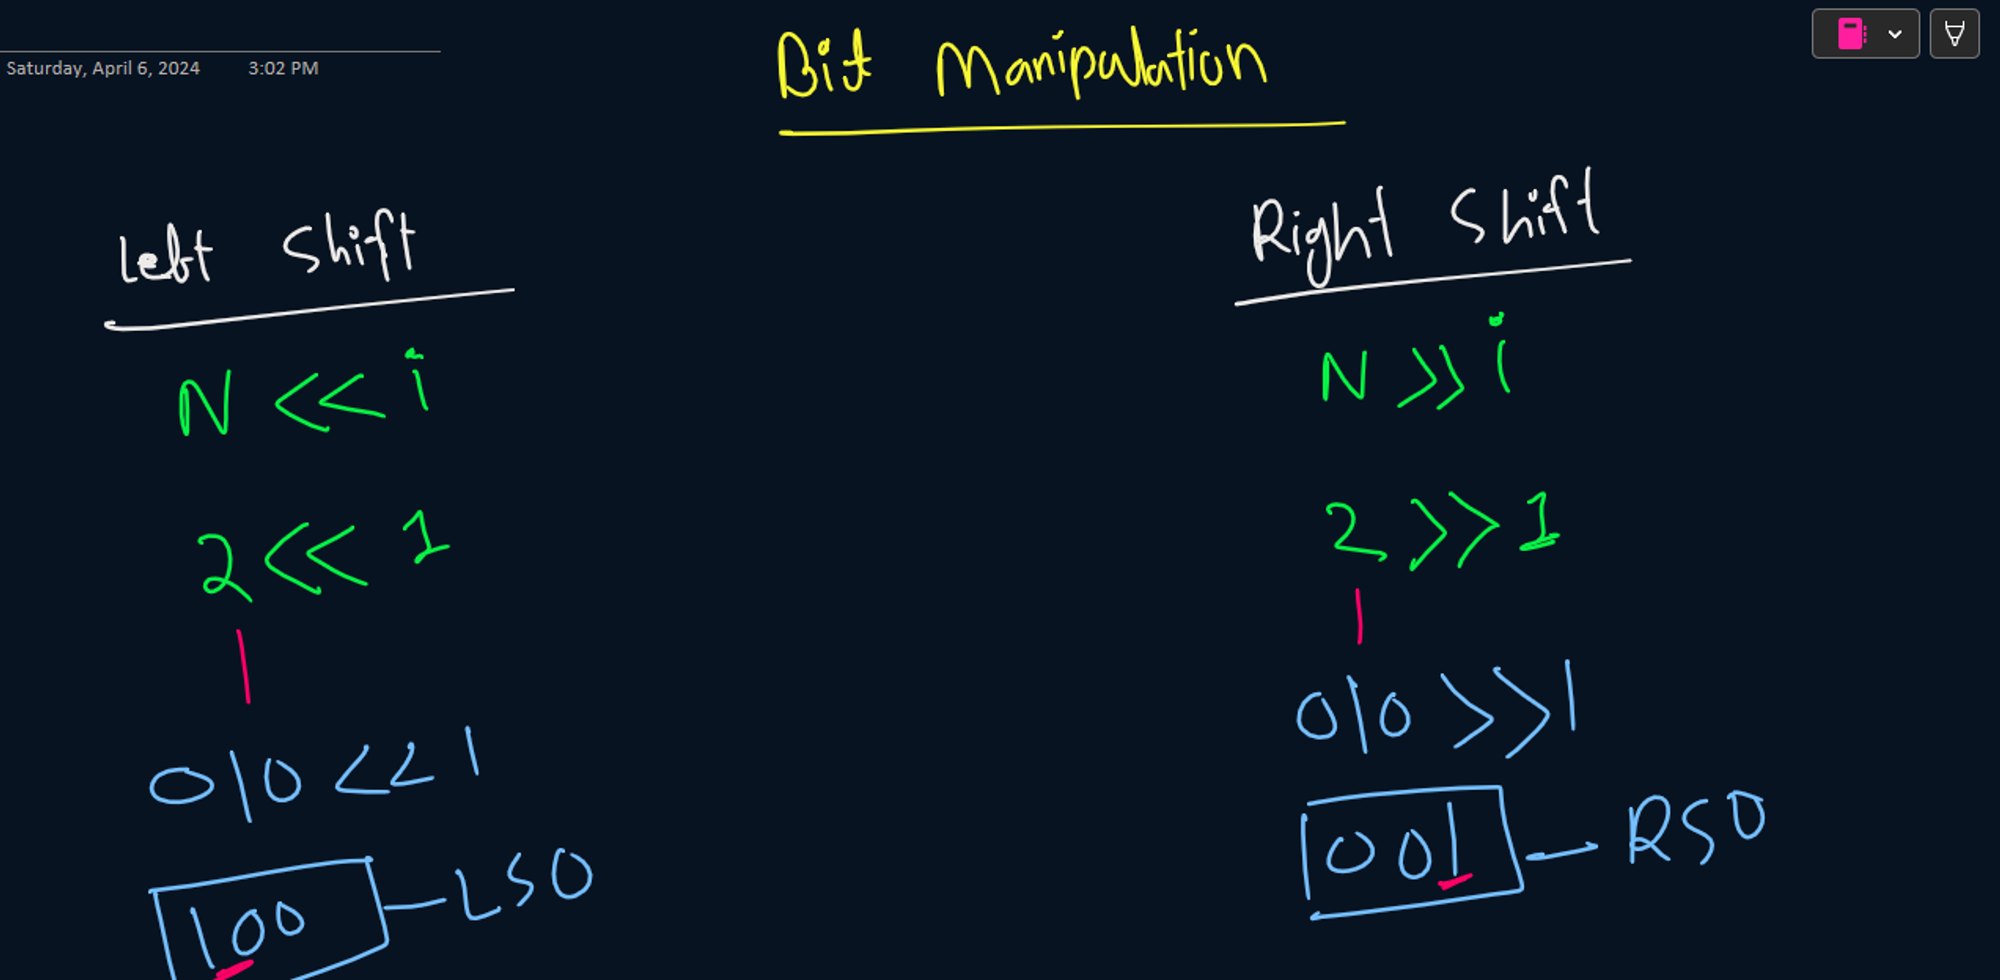 Saturday, April 6, 2024 3:02 PM
Bit Manipulation
Left Shift
N << i
2 << 1
010 << 1
100 - LSO
Right Shift
N >> i
2 >> 1
010 >> 1
001 - RSO